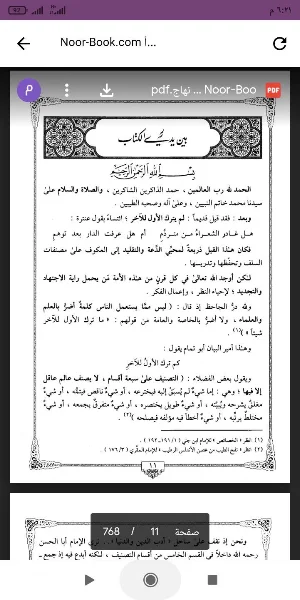 ٦:٣١ م
Noor-Book.com أ...
P
Noor-Boo ... نهاج.pdf
PDF
بين يدي الكتاب
بسم الله الرحمن الرحيم
الحمد لله رب العالمين ، حمد الذاكرين الشاكرين ، والصلاة والسلام على
سيدنا محمد خاتم النبيين ، وعلى آله وصحبه الطيبين .
وبعد : فقد قيل قديماً : لم يترك الأول للآخر ؛ ائتساءً بقول عنترة :
هل غادر الشعراء من متردم أم هل عرفت الدار بعد توهم
فكان هذا القيل ذريعة لمحبي الدعة والتقليد إلى العكوف على مصنفات
السلف وتحفظها وتدريسها .
لكن أوجد الله تعالى في كل قرن من هذه الأمة من يحمل راية الاجتهاد
والتجديد ؛ لإحياء النظر ، وإعمال الفكر .
ولله در الجاحظ إذ قال : ( ليس مما يستعمل الناس كلمة أضر بالعلم
والعلماء ، ولا أضر بالخاصة والعامة من قولهم : « ما ترك الأول للآخر
شيئاً » )(١) .
وهذا أمير البيان أبو تمام يقول :
كم ترك الأول للآخر
ويقول بعض الفضلاء : ( التصنيف على سبعة أقسام ، لا يصنف عالم عاقل
إلا فيها ؛ وهي : إما شيء لم يسبق إليه فيخترعه ، أو شيء ناقص فيتمه ، أو شيء
مغلق يشرحه ويبينه ، أو شيء طويل يختصره ، أو شيء متفرق يجمعه ، أو شيء
مختلط يرتبه ، أو شيء أخطأ فيه مؤلفه فيصلحه )(٢) .
(١) انظر « الخصائص » للإمام ابن جني ( ١/١٩١-١٩٢ ) .
(٢) انظر « نفح الطيب من غصن الأندلس الرطيب » للإمام المقري ( ١٧٦/٣ )
١١
صفحة 11 / 768
ونحن إذ نقف على
رحمه الله داخلاً في القسم الخامس من أقسام التصنيف ، لكنه أبدع فيه إذ جمع -